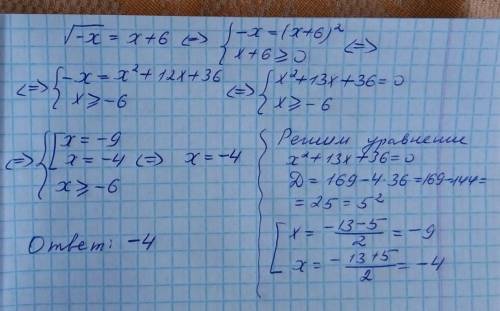 √-x = x+6 <=> { -x = (x+6)²
x+6 ≥ 0 <=>
<=> { -x = x²+12x+36
x ≥ -6 <=> { x²+13x+36=0
x ≥ -6
<=> { [ x = -9
x = -4 <=> x = -4
x ≥ -6
Ответ: -4
Решим уравнение
x²+13x+36=0
D = 169-4·36=169-144=
= 25 = 5²
[ x = -13-5/2 = -9
x = -13+5/2 = -4